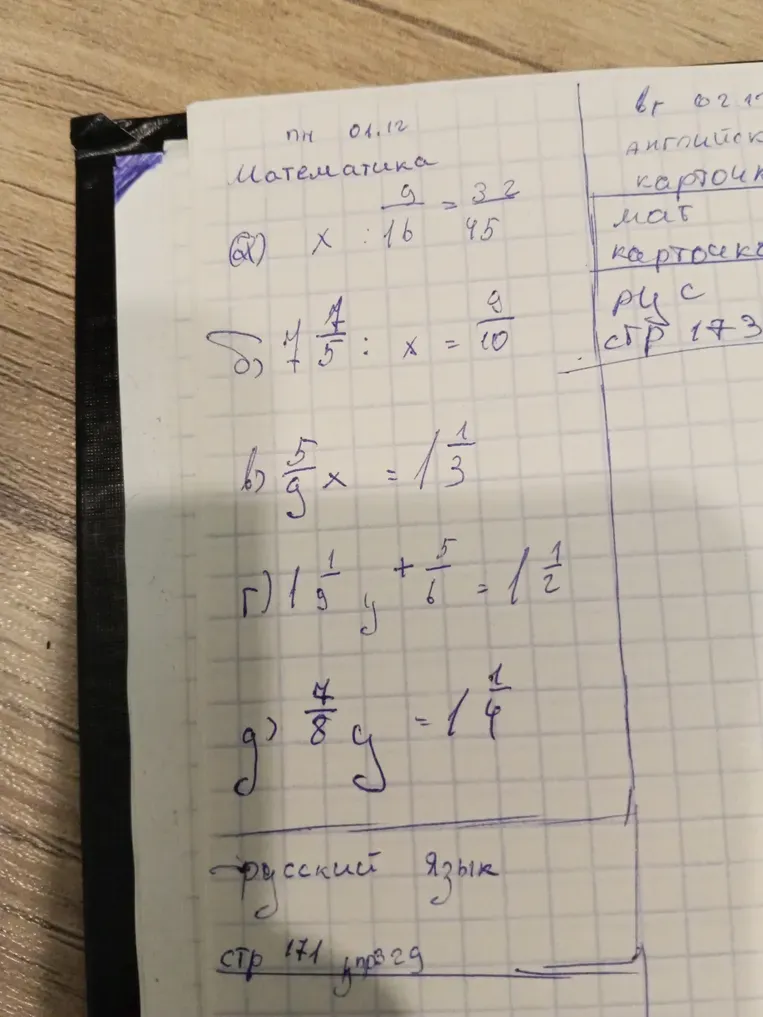 пн 01.12
Математика
а) x : 9/16 = 32/45
б) 7 7/5 : x = 9/10
в) 5/9 x = 1 1/3
г) 1 1/9 y + 5/6 = 1 1/2
д) 7/8 y = 1 1/4
русский язык
стр 171 упр329
вт 02.1
английск
карточк
мат
карточка
рус
стр 173